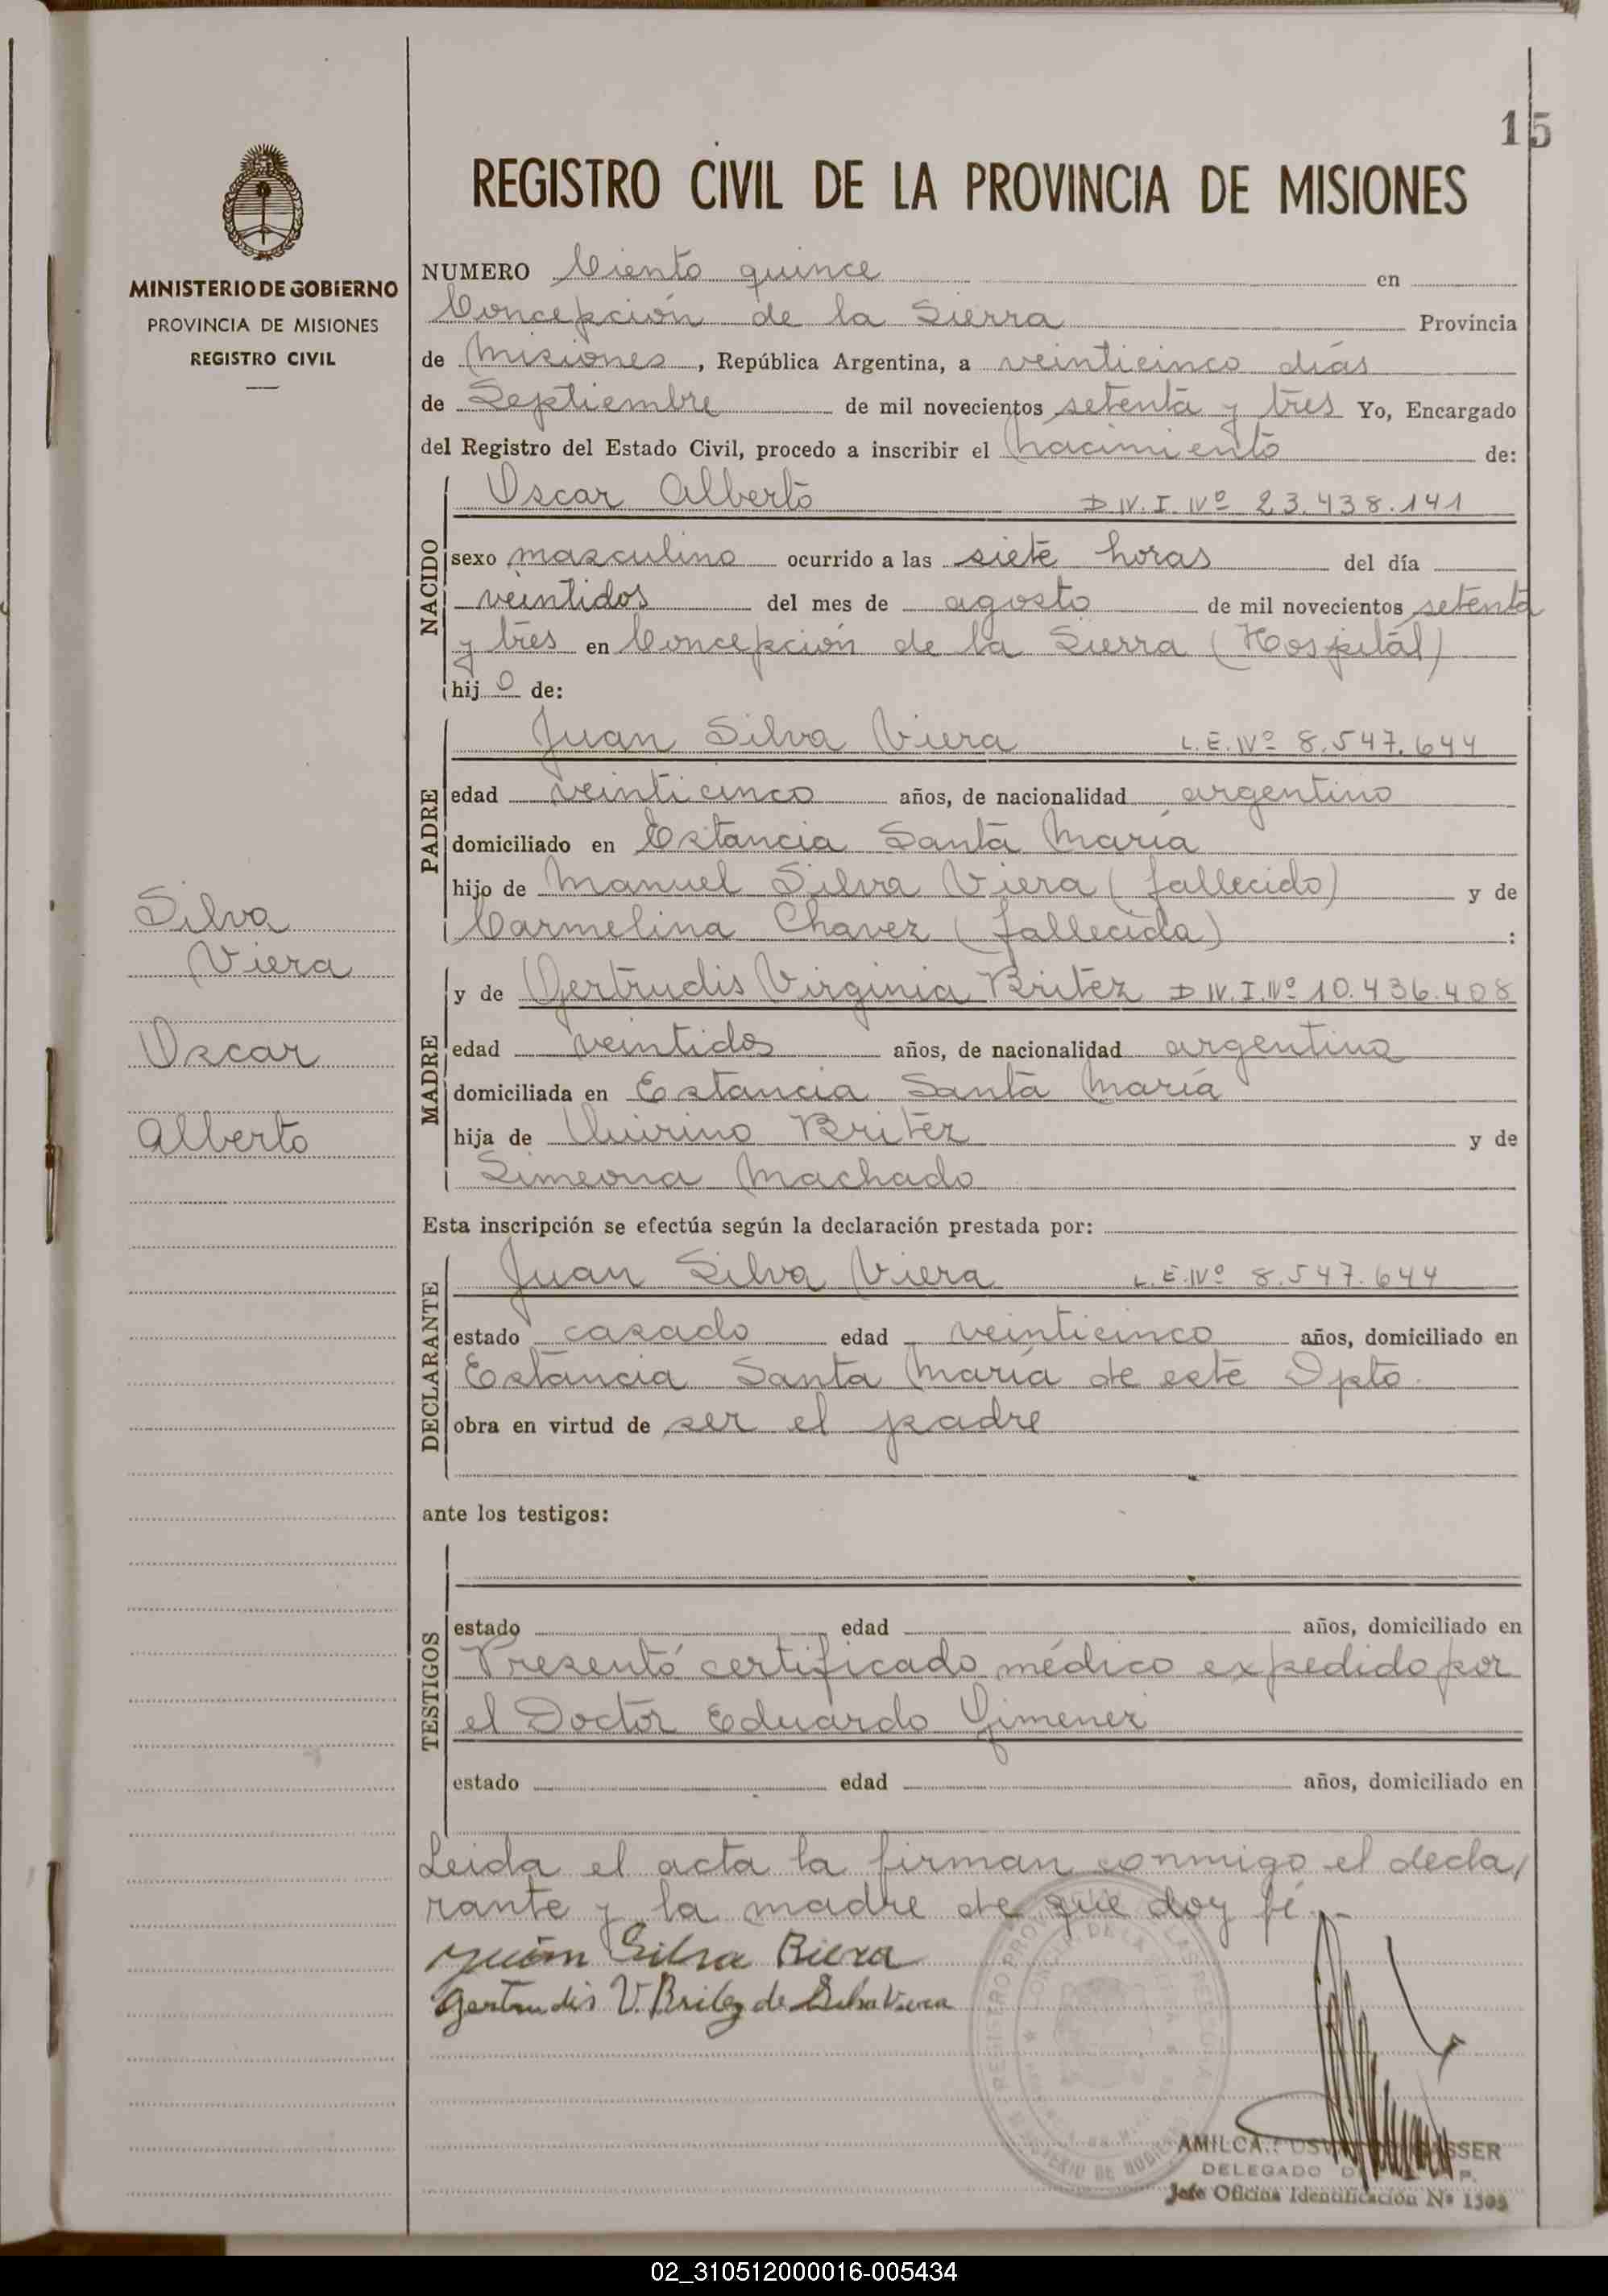 15
REGISTRO CIVIL DE LA PROVINCIA DE MISIONES
MINISTERIO DE GOBIERNO
PROVINCIA DE MISIONES
REGISTRO CIVIL
NUMERO Ciento quince en
Concepción de la Sierra Provincia
de Misiones, República Argentina, a veinticinco días
de Septiembre de mil novecientos setenta y tres Yo, Encargado
del Registro del Estado Civil, procedo a inscribir el nacimiento de:
NACIDO
Oscar Alberto D N. I. Nº 23.438.141
sexo masculino ocurrido a las siete horas del día
veintidos del mes de agosto de mil novecientos setenta
y tres en Concepción de la Sierra (Hospital)
hij o de:
PADRE
Juan Silva Viera L. E. Nº 8.547.644
edad veinticinco años, de nacionalidad argentino
domiciliado en Estancia Santa María
hijo de Manuel Silva Viera (fallecido) y de
Carmelina Chavez (fallecida) :
Silva
Viera
Oscar
Alberto
MADRE
y de Gertrudis Virginia Britez D N. I. Nº 10.436.408
edad veintidos años, de nacionalidad argentina
domiciliada en Estancia Santa María
hija de Quirino Britez y de
Simeona Machado
Esta inscripción se efectúa según la declaración prestada por:
DECLARANTE
Juan Silva Viera L. E. Nº 8.547.644
estado casado edad veinticinco años, domiciliado en
Estancia Santa María de este Dpto.
obra en virtud de ser el padre
ante los testigos:
TESTIGOS
estado edad años, domiciliado en
Presentó certificado médico expedido por
el Doctor Eduardo Gimenez
estado edad años, domiciliado en
Leida el acta la firman conmigo el decla/
rante y la madre de que doy fé.-
Juan Silva Biera
Gertrudis V. Britez de Silva Viera
DELEGADO
Jefe Oficina Identificación Nº 1305
02_310512000016-005434